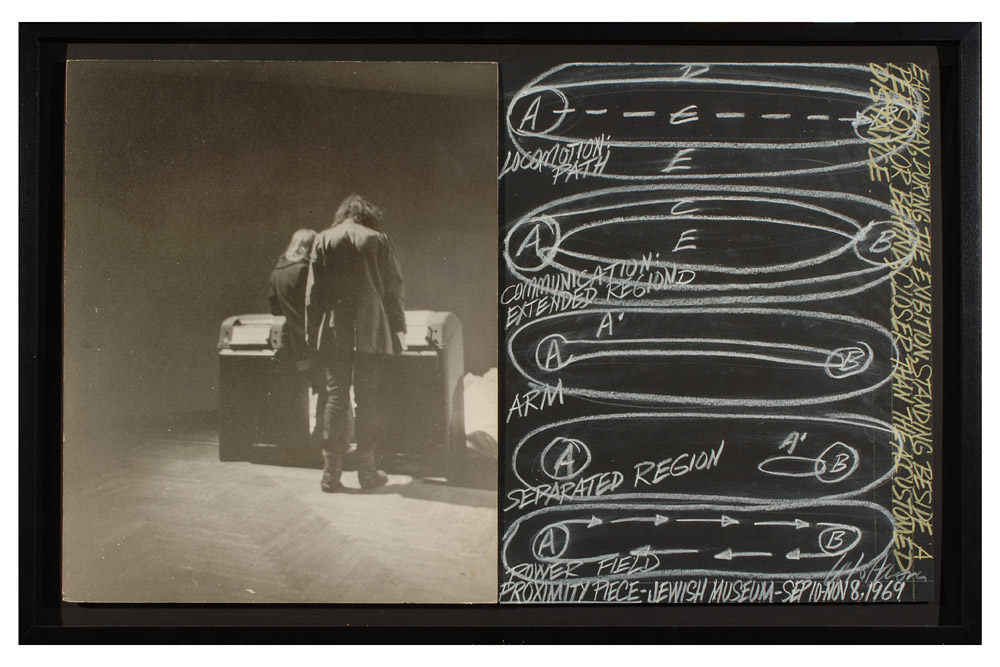 D
A E
LOCOMOTION:
PATH E
C
A E B
COMMUNICATION:
EXTENDED REGIOND
A'
A B
ARM
A A' B
SEPARATED REGION
A B
POWER FIELD
PROXIMITY PIECE-JEWISH MUSEUM-SEP 10-NOV 8, 1969
EACH DAY DURING THE EXHIBITION: STANDING BESIDE A
PERSON, OR BEHIND, CLOSER THAN THE ACCUSTOMED
DISTANCE